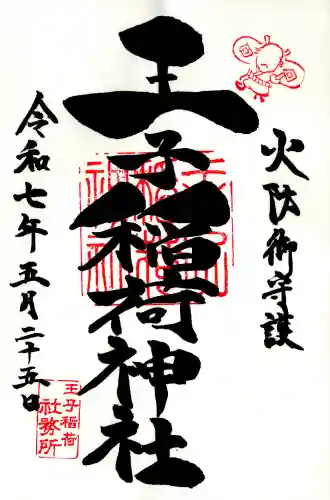 火防御守護
王子稲荷神社
令和七年五月二十五日
王子稲荷
社務所